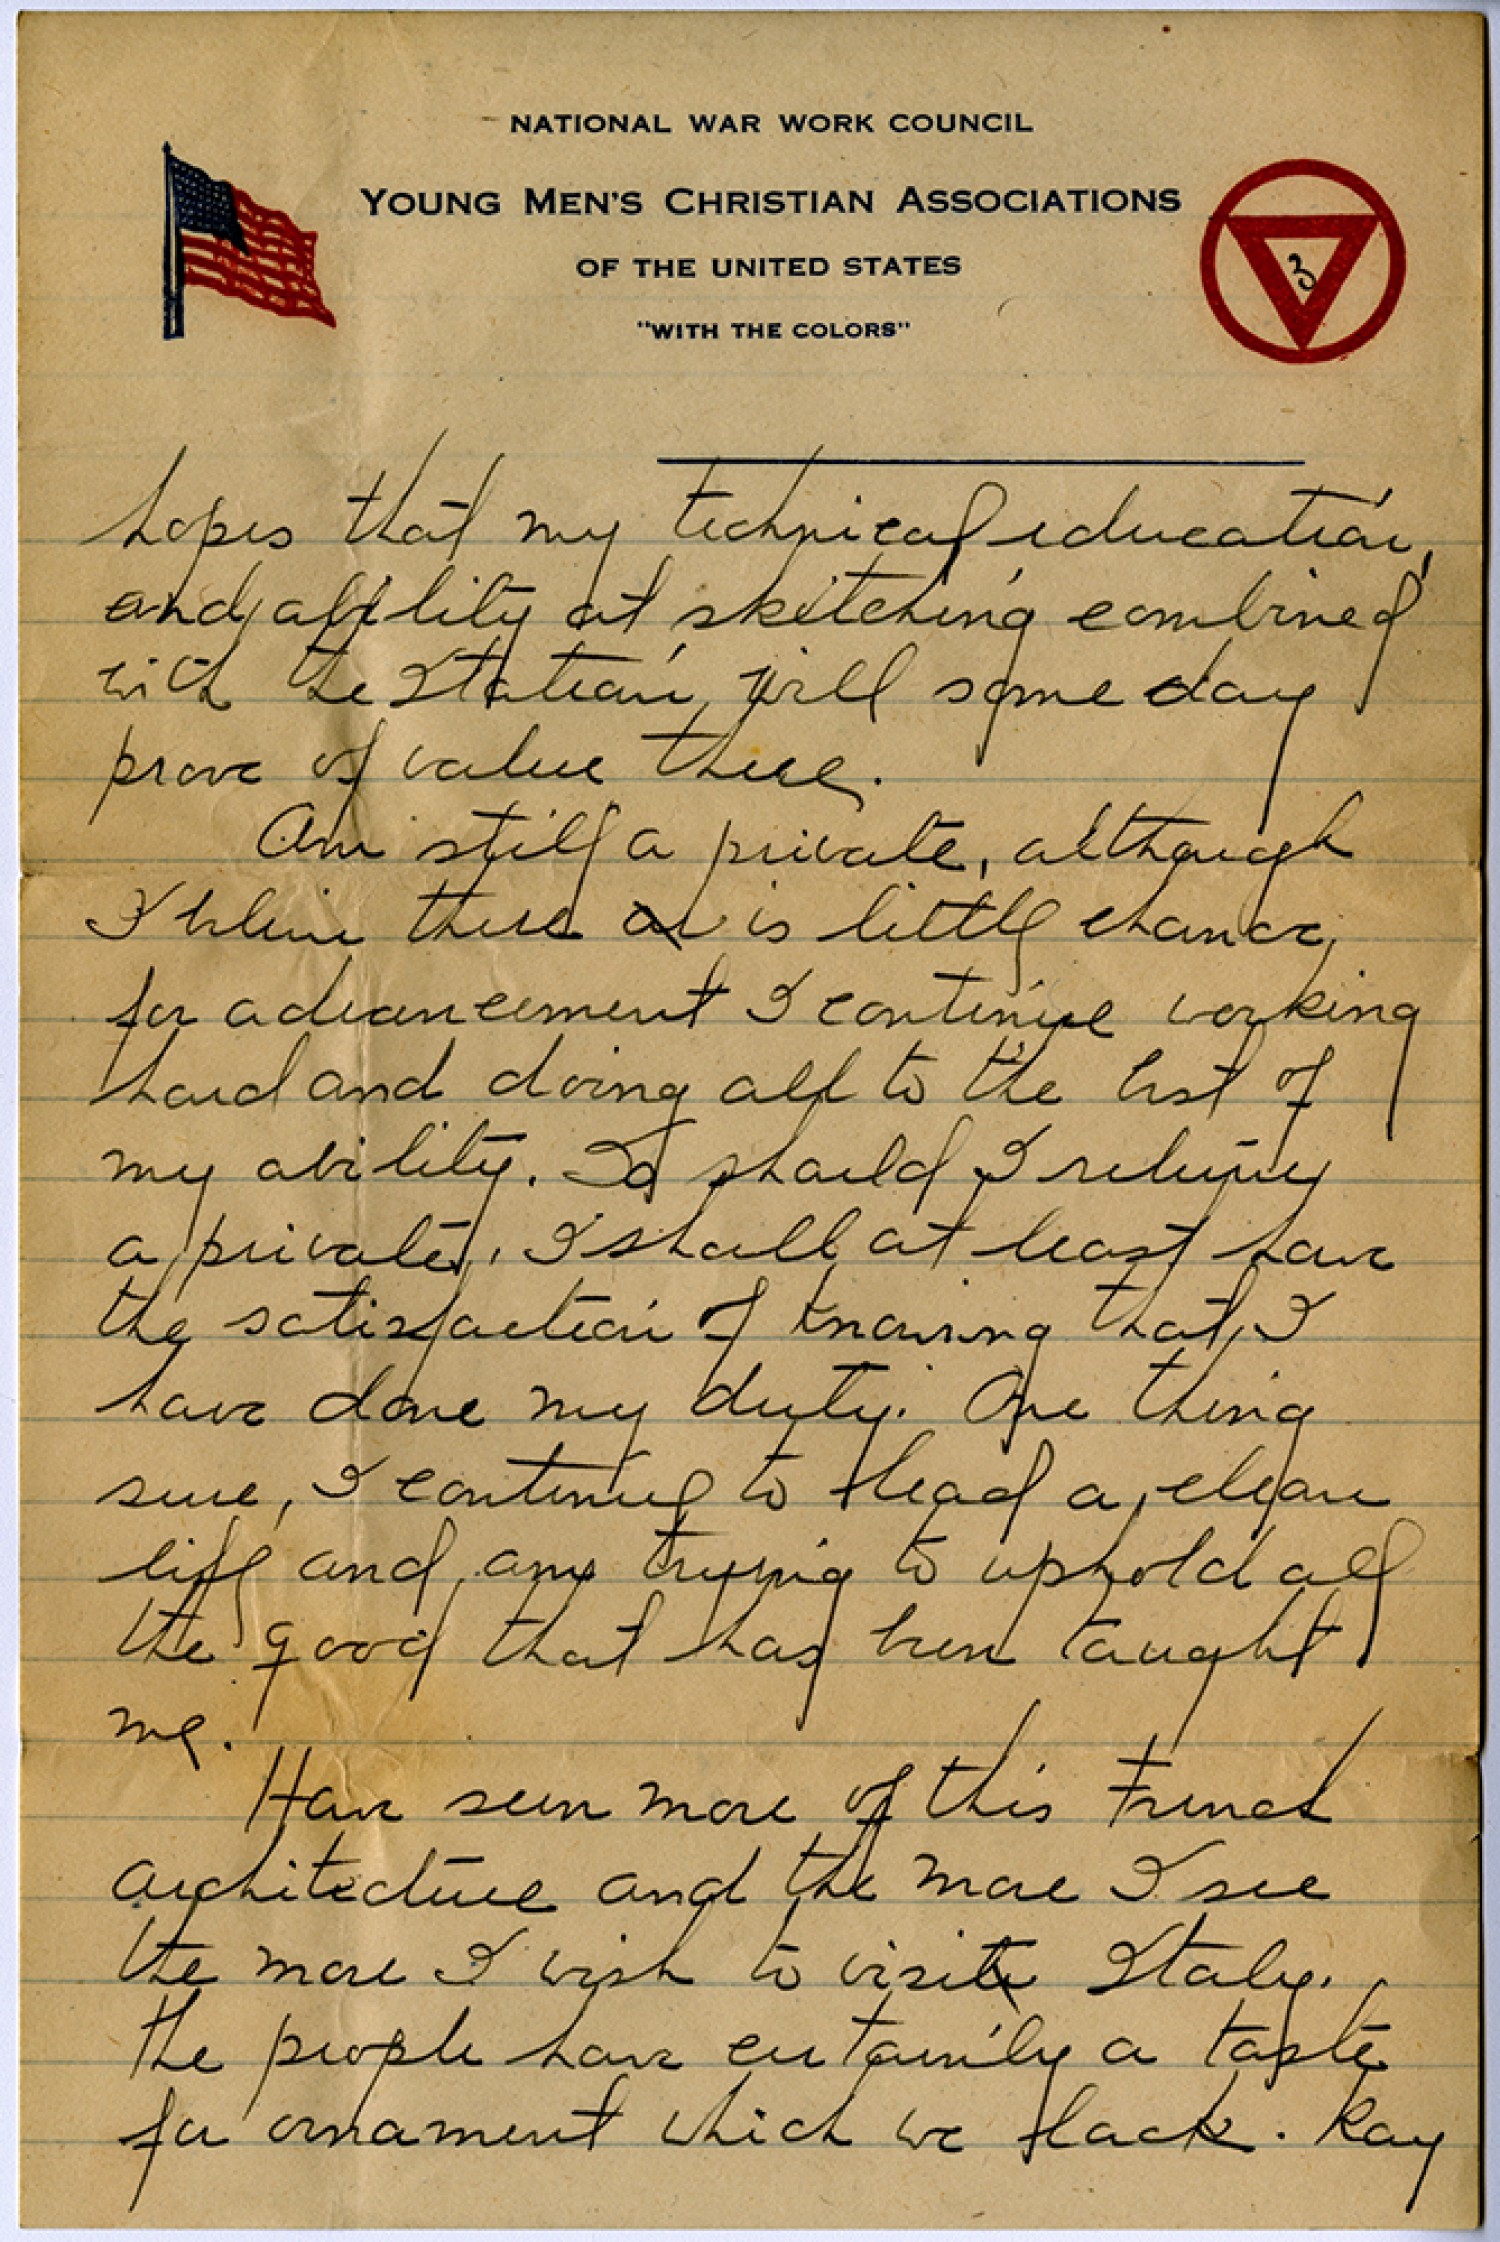 NATIONAL WAR WORK COUNCIL
YOUNG MEN'S CHRISTIAN ASSOCIATIONS
OF THE UNITED STATES
"WITH THE COLORS"
3
hopes that my technical education,
and ability at sketching combined
with the Station will some day
prove of value there.
Am still a private, although
I believe there is little chance
for advancement I continue working
hard and doing all to the best of
my ability. So should I return
a private, I shall at least have
the satisfaction of knowing that I
have done my duty. One thing
sure, I continue to lead a clean
life and am trying to uphold all
the good that has been taught
me.
Have seen more of this French
architecture and the more I see
the more I wish to visit Italy.
The people have certainly a taste
for ornament which we lack. Ray